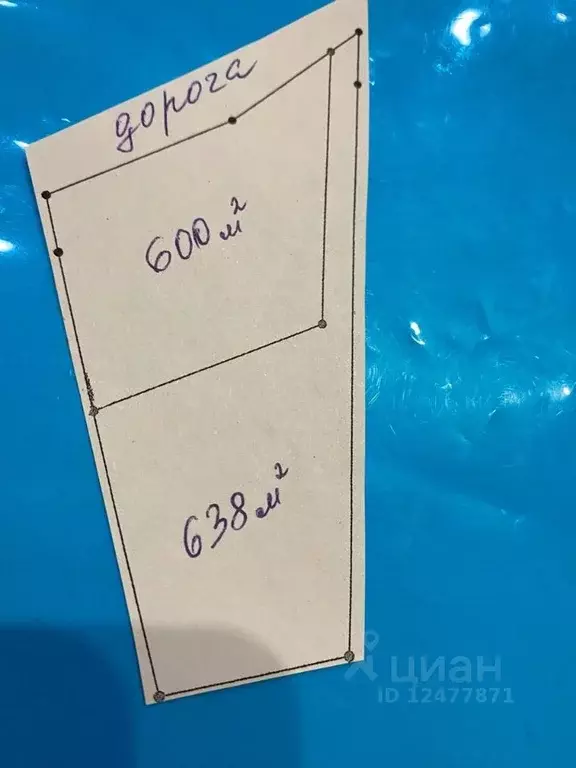 дорога
600 м²
638 м²
циан
ID 12477871